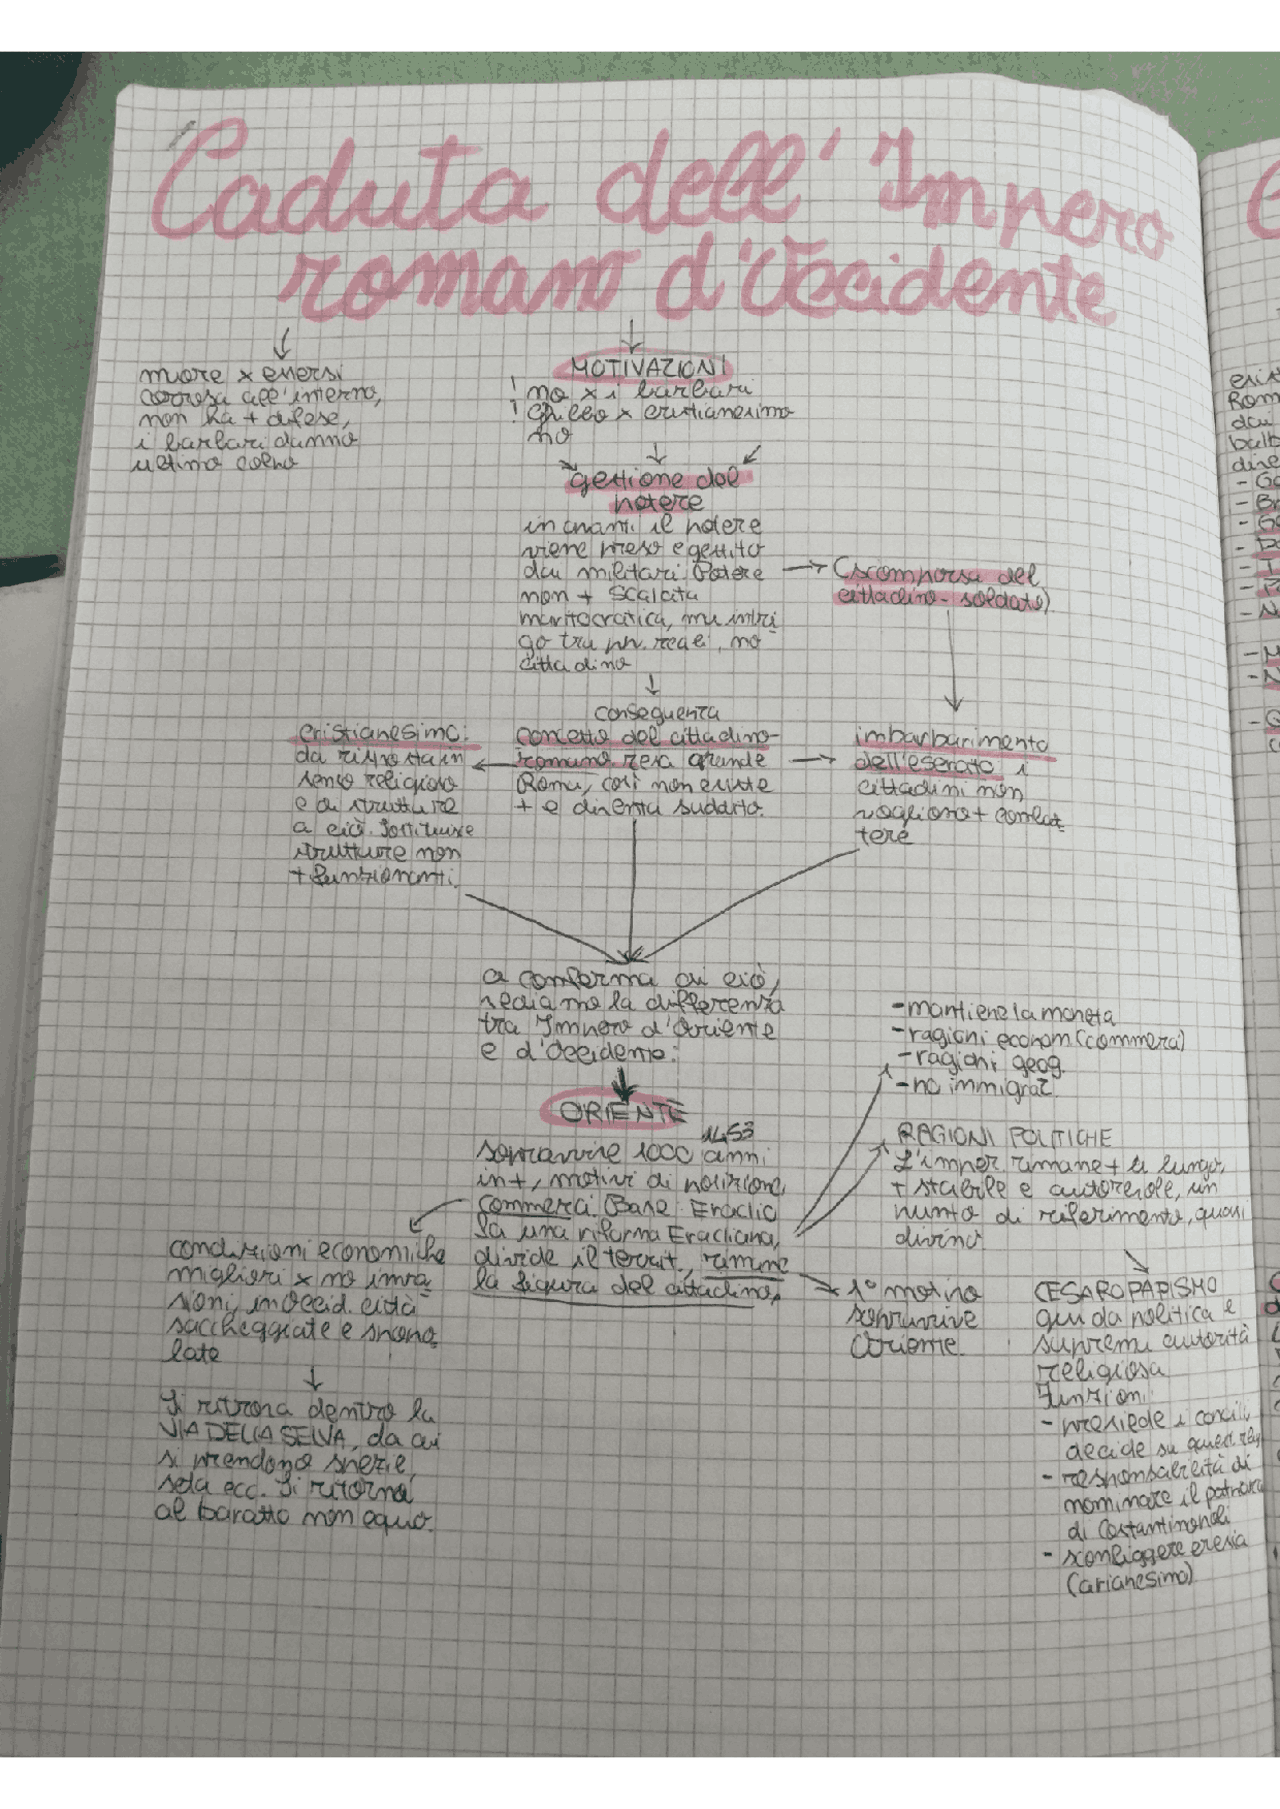 Caduta dell'Impero
romano d'Occidente
muore x essersi
corrosa all'interno,
non ha + difese,
i barbari danno
ultimo colpo
MOTIVAZIONI
! no x i barbari
! Crollo x cristianesimo
no
gestione del
potere
in quanti il potere
viene preso e gestito
dai militari. Potere
non + scalata
meritocratica, ma intri
go tra pp. reali, no
cittadino
(scomparsa del
cittadino-soldato)
conseguenza
cristianesimo:
da risposta in
senso religioso
e di strutture
a ciò. Sostituisce
strutture non
+ funzionanti.
concetto del cittadino-
romano resa grande
Roma, così non esiste
+ e diventa suddito.
imbarbarimento
dell'esercito i
cittadini non
vogliono + combat
tere
a conferma di ciò,
vediamo la differenza
tra Impero d'Oriente
e d'Occidente:
ORIENTE
1453
sopravvive 1000 anni
in +, motivi di posizione,
commerci. Base Eraclio
fa una riforma Eracliana,
divide il territ., rimane
la figura del cittadino,
- mantiene la moneta
- ragioni econom (commerci)
- ragioni geog.
- no immigraz.
RAGIONI POLITICHE
L'imper. rimane + a lungo,
+ stabile e autorevole, un
punto di riferimento, quasi
divino
1° motivo
sopravvive
Oriente.
CESAROPAPISMO
guida politica e
suprema autorità
religiosa
Funzioni:
- presiede i concili,
decide su quest. relig
- responsabilità di
nominare il patriarca
di Costantinopoli
- sconfiggere eresia
(arianesimo)
condizioni economiche
migliori x no inva
sioni, in occid. città
saccheggiate e spopo
late
Si ritrova dentro la
VIA DELLA SELVA, da cui
si prendono spezie,
seta ecc. Si ritorna
al baratto non equo.